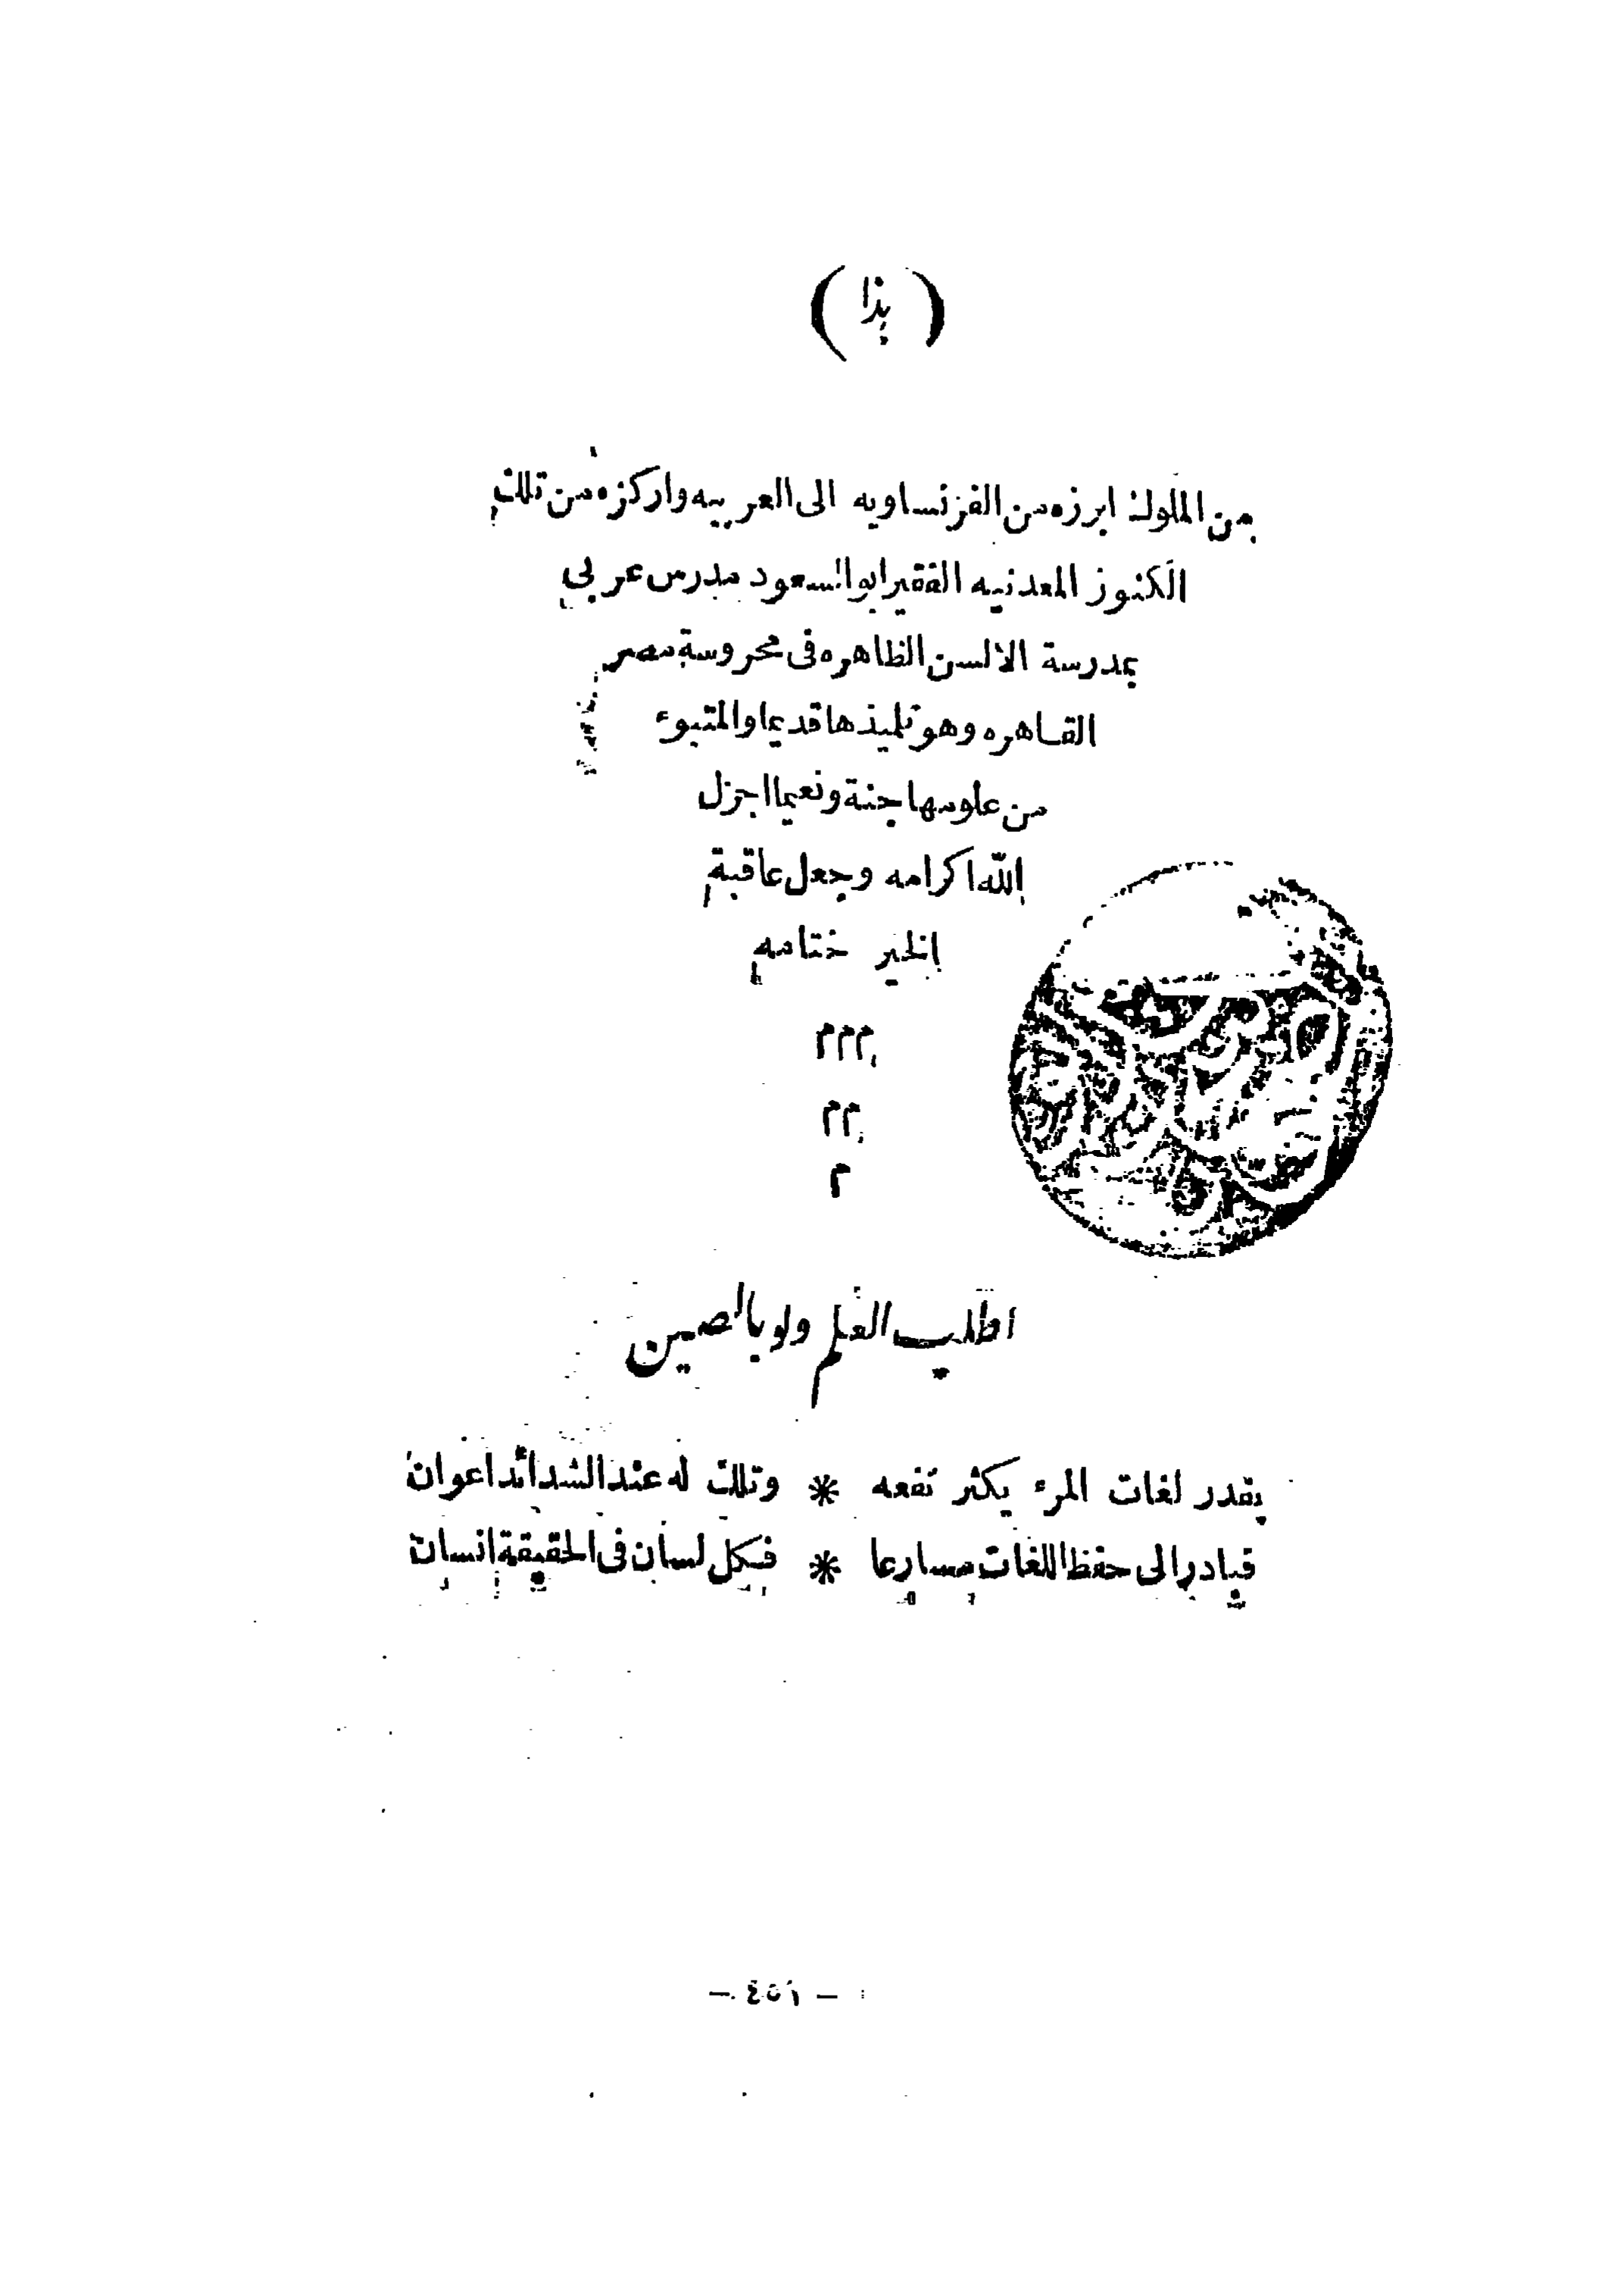 ( بذا )
من الملوك ابرزه من الفرنساويه الى العربيه واركزه من تلك
الكنوز المعدنيه الفقير ابوالسعود مدرس عربى
بمدرسة الالسن الظاهره فى محروسة مصر
القاهره وهو تلميذها قديما والمتبوء
من علومها جنة ونعيما اجزل
الله اكرامه وجعل عاقبة
الخير ختامه
م م م
م م
م
اطلب العلم ولو بالصين
بقدر لغات المرء يكثر نفعه * وتلك له عند الشدائد اعوان
فبادر الى حفظ اللغات مسارعا * فكل لسان فى الحقيقة انسان
— ٤٥١ —